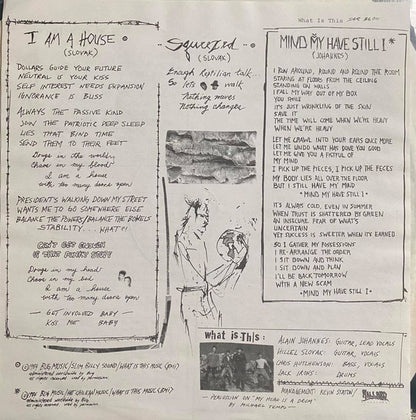 What Is This
I AM A HOUSE
(SLOVAK)
DOLLARS GUIDE YOUR FUTURE
NEUTRAL IS YOUR KISS
SELF INTEREST NEEDS EXPANSION
IGNORANCE IS BLISS
ALWAYS THE PASSIVE KIND
JOIN THE PATRIOTIC DEEP SLEEP
LIES THAT BIND TIME
SEND THEM TO THEIR FEET
Drugs in the
Chaos in my blood
I am a house
with too many doors open
PRESIDENTS WALKING DOWN MY STREET
WANTS ME TO GO SOMEWHERE ELSE
BALANCE THE POWERS/BALANCE THE BOWELS
STABILITY.... WHAT?!
CAN'T GET ENOUGH
OF THAT FUNKY STUFF
Drugs in my head
Chaos in my bed
I am a house
with too many doors open
— GET INVOLVED BABY —
KISS ME BABY
Squeezed
(SLOVAK)
Enough Reptilian talk...
So let's walk
Nothing moves
Nothing changes
MIND MY HAVE STILL I*
(JOHANNES)
I RUN AROUND, ROUND AND ROUND THE ROOM
STARING AT FLOORS FROM THE CEILING
STANDING ON WALLS
I FALL MY WAY OUT OF MY BOX
YOU SMILE
IT'S JUST WRINKLING OF THE SKIN
SAVE IT
THE TIME WILL COME WHEN WE'RE HEAVY
WHEN WE'RE HEAVY
LET ME CRAWL INTO YOUR EARS ONCE MORE
LET ME UNDO WHAT HAS DONE YOU GOOD
LET ME GIVE YOU A FISTFUL OF
MY MIND
I PICK UP THE PIECES, I PICK UP THE PIECES
MY BODY LIES ALL OVER THE FLOOR
BUT I STILL HAVE MY MIND
*MIND MY HAVE STILL I*
IT'S ALWAYS COLD, EVEN IN SUMMER
WHEN TRUST IS SHATTERED BY GREEN
AN INSECURE FEAR OF WHAT'S
UNCERTAIN
YET SUCCESS IS SWEETER WHEN IT'S EARNED
SO I GATHER MY POSSESSIONS
I RE-ARRANGE THE ORDER
I SIT DOWN TO THINK
I SIT DOWN AND PLAN
I'LL BE BACK TOMORROW
WITH A NEW SCAM
*MIND MY HAVE STILL I*
What is This:
ALAIN JOHANNES: GUITAR, LEAD VOCALS
HILLEL SLOVAK: GUITAR, VOCALS
CHRIS HUTCHINSON: BASS, VOCALS
JACK IRONS: DRUMS
MANAGEMENT: KEVIN STATIN
— PERCUSSION ON "MY HEAD IS A DRUM"
BY MICHAEL TEMPO
© 1984 BILL MUSIC/SLIM BILLY SOUND/WHAT IS THIS MUSIC (BMI)
© 1984 BILL MUSIC/ME CHICKEN MUSIC/WHAT IS THIS MUSIC (BMI)